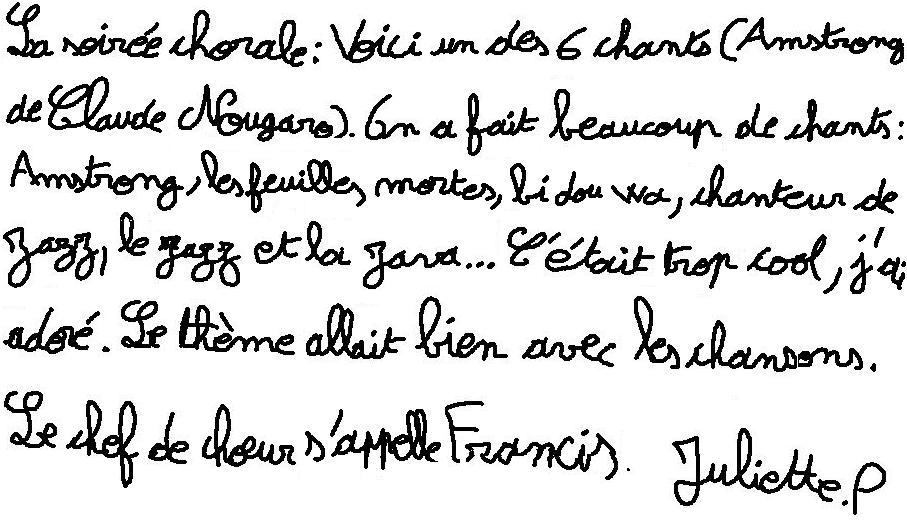 La soirée chorale : Voici un des 6 chants (Amstrong
de Claude Nougaro). On a fait beaucoup de chants :
Amstrong, les feuilles mortes, bi dou wa, chanteur de
Jazz, le jazz et la Java... C'était trop cool, j'ai
adoré. Le thème allait bien avec les chansons.
Le chef de chœur s'appelle Francis. Juliette.P